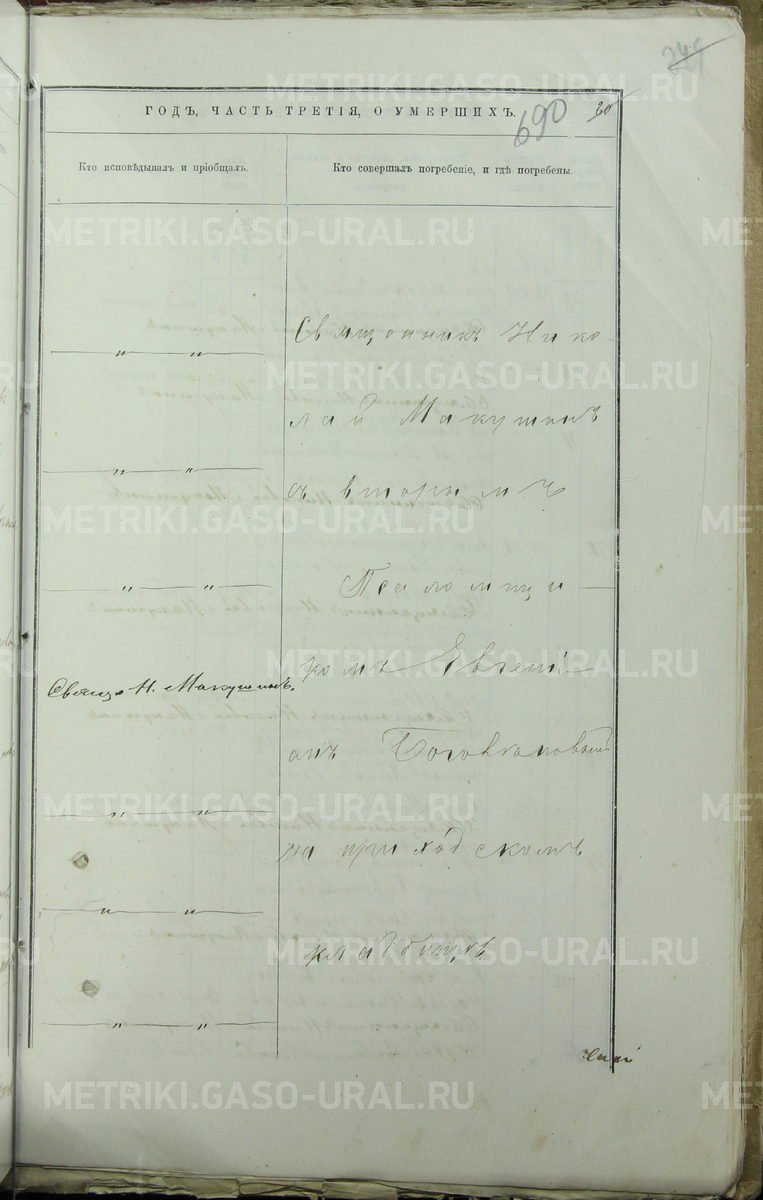 249
ГОДЪ, ЧАСТЬ ТРЕТІЯ, О УМЕРШИХЪ.
690
20
Кто исповѣдывалъ и пріобщалъ.
Кто совершалъ погребеніе, и гдѣ погребены.
Священникъ Нико-
лай Макушинъ
съ вторымъ
Псаломщи-
комъ Евгені-
Священ. Н. Макушинъ.
емъ
на приходскомъ
кладбищѣ
METRIKI.GASO-URAL.RU